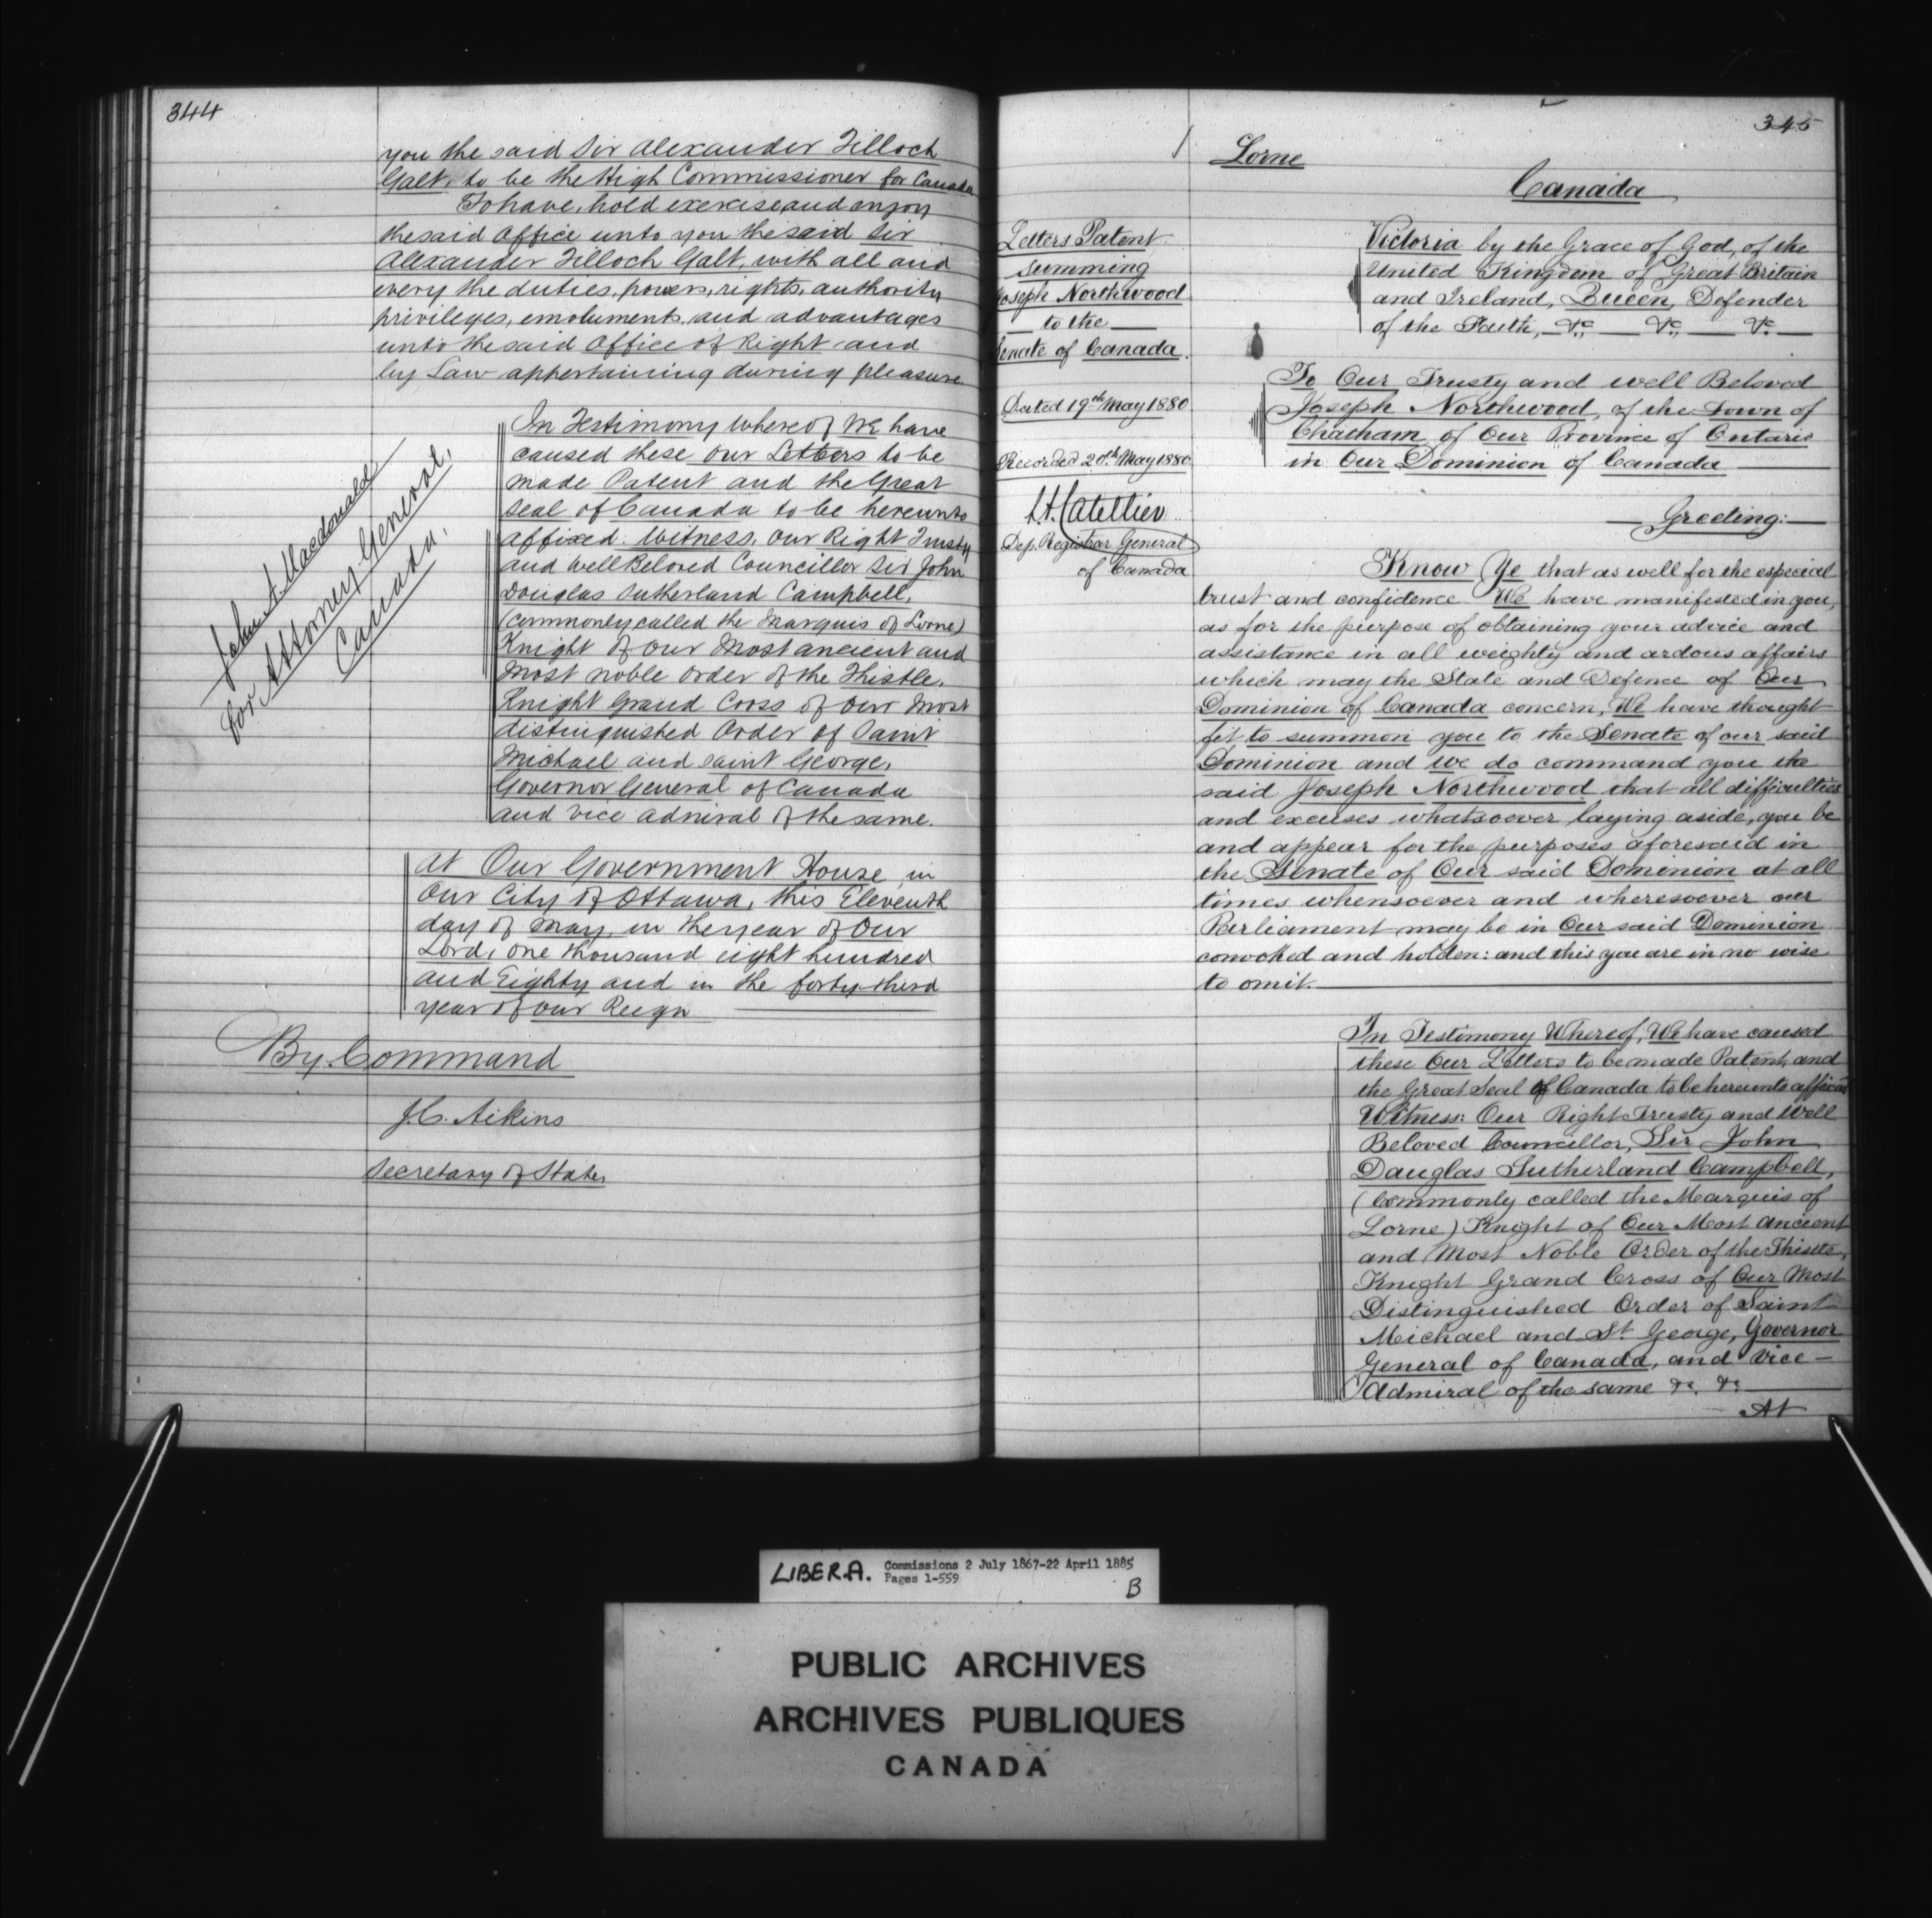 344
you the said Sir Alexander Tilloch
Galt, to be the High Commissioner for Canada
To have, hold exercise, and enjoy
the said Office unto you the said Sir
Alexander Tilloch Galt, with all and
every the duties, powers, rights, authority
privileges, emoluments, and advantages
unto the said Office of Right and
by Law appertaining during pleasure.
In Testimony Whereof We have
caused these Our Letters to be
made Patent and the Great
Seal of Canada to be hereunto
affixed: Witness, Our Right Trusty
and Well Beloved Councillor Sir John
Douglas Sutherland Campbell,
(commonly called the Marquis of Lorne)
Knight of Our Most ancient and
Most noble Order of the Thistle,
Knight Grand Cross of Our Most
distinguished Order of Saint
Michael and Saint George,
Governor General of Canada
and Vice Admiral of the same.
John A. Macdonald
for Attorney General,
Canada.
At Our Government House, in
Our City of Ottawa, this Eleventh
day of May, in the year of Our
Lord, One thousand eight hundred
and Eighty and in the forty-third
year of Our Reign
By Command
J.C. Aikins
Secretary of State,
345
Lorne
Canada
Letters Patent
summing
Joseph Northwood
to the
Senate of Canada.
Dated 19th May 1880
Recorded 20th May 1880
Dep. Registrar General
of Canada
Victoria by the Grace of God, of the
United Kingdom of Great Britain
and Ireland, Queen, Defender
of the Faith, &c &c &c
To Our Trusty and well Beloved
Joseph Northwood, of the Town of
Chatham of Our Province of Ontario
in Our Dominion of Canada
Greeting:
Know Ye that as well for the especial
trust and confidence We have manifested in you,
as for the purpose of obtaining your advice and
assistance in all weighty and ardous affairs
which may the State and Defence of Our
Dominion of Canada concern, We have thought
fit to summon you to the Senate of our said
Dominion and we do command you the
said Joseph Northwood that all difficulties
and excuses whatsoever laying aside, you be
and appear for the purposes aforesaid in
the Senate of Our said Dominion at all
times whensoever and wheresoever our
Parliament may be in Our said Dominion
convoked and holden: and this you are in no wise
to omit.
In Testimony Whereof, We have caused
these Our Letters to be made Patent, and
the Great Seal of Canada to be hereunto affixed
Witness: Our Right Trusty and Well
Beloved Councillor, Sir John
Douglas Sutherland Campbell,
(Commonly called the Marquis of
Lorne) Knight of Our Most Ancient
and Most Noble Order of the Thistle,
Knight Grand Cross of Our Most
Distinguished Order of Saint
Michael and St. George, Governor
General of Canada, and Vice-
Admiral of the same &c. &c
At
LIBER.A. Commissions 2 July 1867-22 April 1885
Pages 1-559
B
PUBLIC ARCHIVES
ARCHIVES PUBLIQUES
CANADA